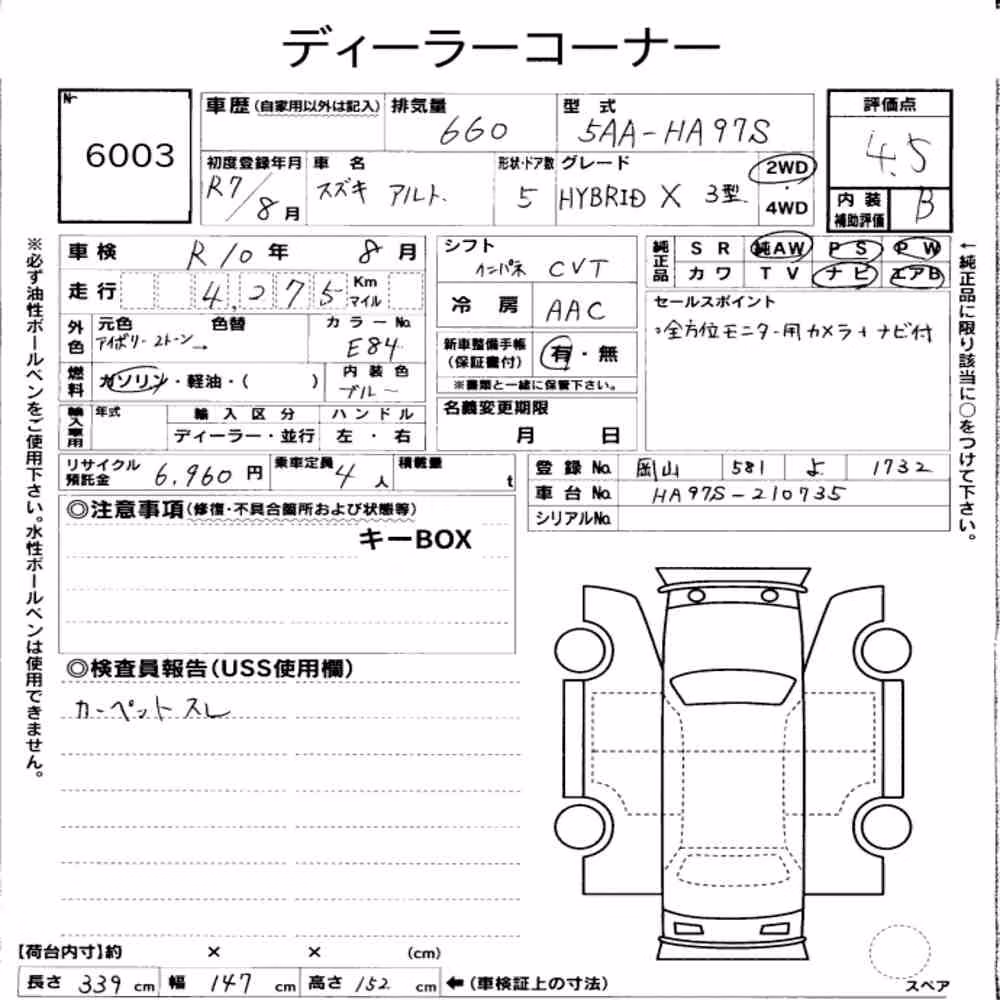 ディーラーコーナー
No.
6003
車歴(自家用以外は記入) 排気量 660 型式 5AA-HA97S
評価点 4.5
初度登録年月 R7/8月 車名 スズキ アルト. 形状・ドア数 5 グレード HYBRID X 3型 2WD・4WD
内装補助評価 B
車検 R10年 8月
走行 4,275 Km マイル
外色 元色 アイボリー 2トーン 色替 カラーNo. E84
燃料 ガソリン・軽油・( ) 内装色 ブルー
輸入車用 年式 輸入区分 ディーラー・並行 ハンドル 左・右
シフト インパネ CVT
冷房 AAC
新車整備手帳(保証書付) 有・無
※書類と一緒に保管下さい。
名義変更期限
月 日
純正品 SR 純AW PS PW
カワ TV ナビ エアB
セールスポイント
○全方位モニター用カメラ+ナビ付
リサイクル預託金 6,960円 乗車定員 4人 積載量 t
登録No. 岡山 581 よ 1732
車台No. HA97S-210735
シリアルNo.
◎注意事項(修復・不具合箇所および状態等)
キーBOX
◎検査員報告(USS使用欄)
カーペットスレ
【荷台内寸】約 × × (cm)
長さ 339 cm 幅 147 cm 高さ 152 cm ←(車検証上の寸法)
スペア
※必ず油性ボールペンをご使用下さい。水性ボールペンは使用できません。
←純正品に限り該当に○をつけて下さい。